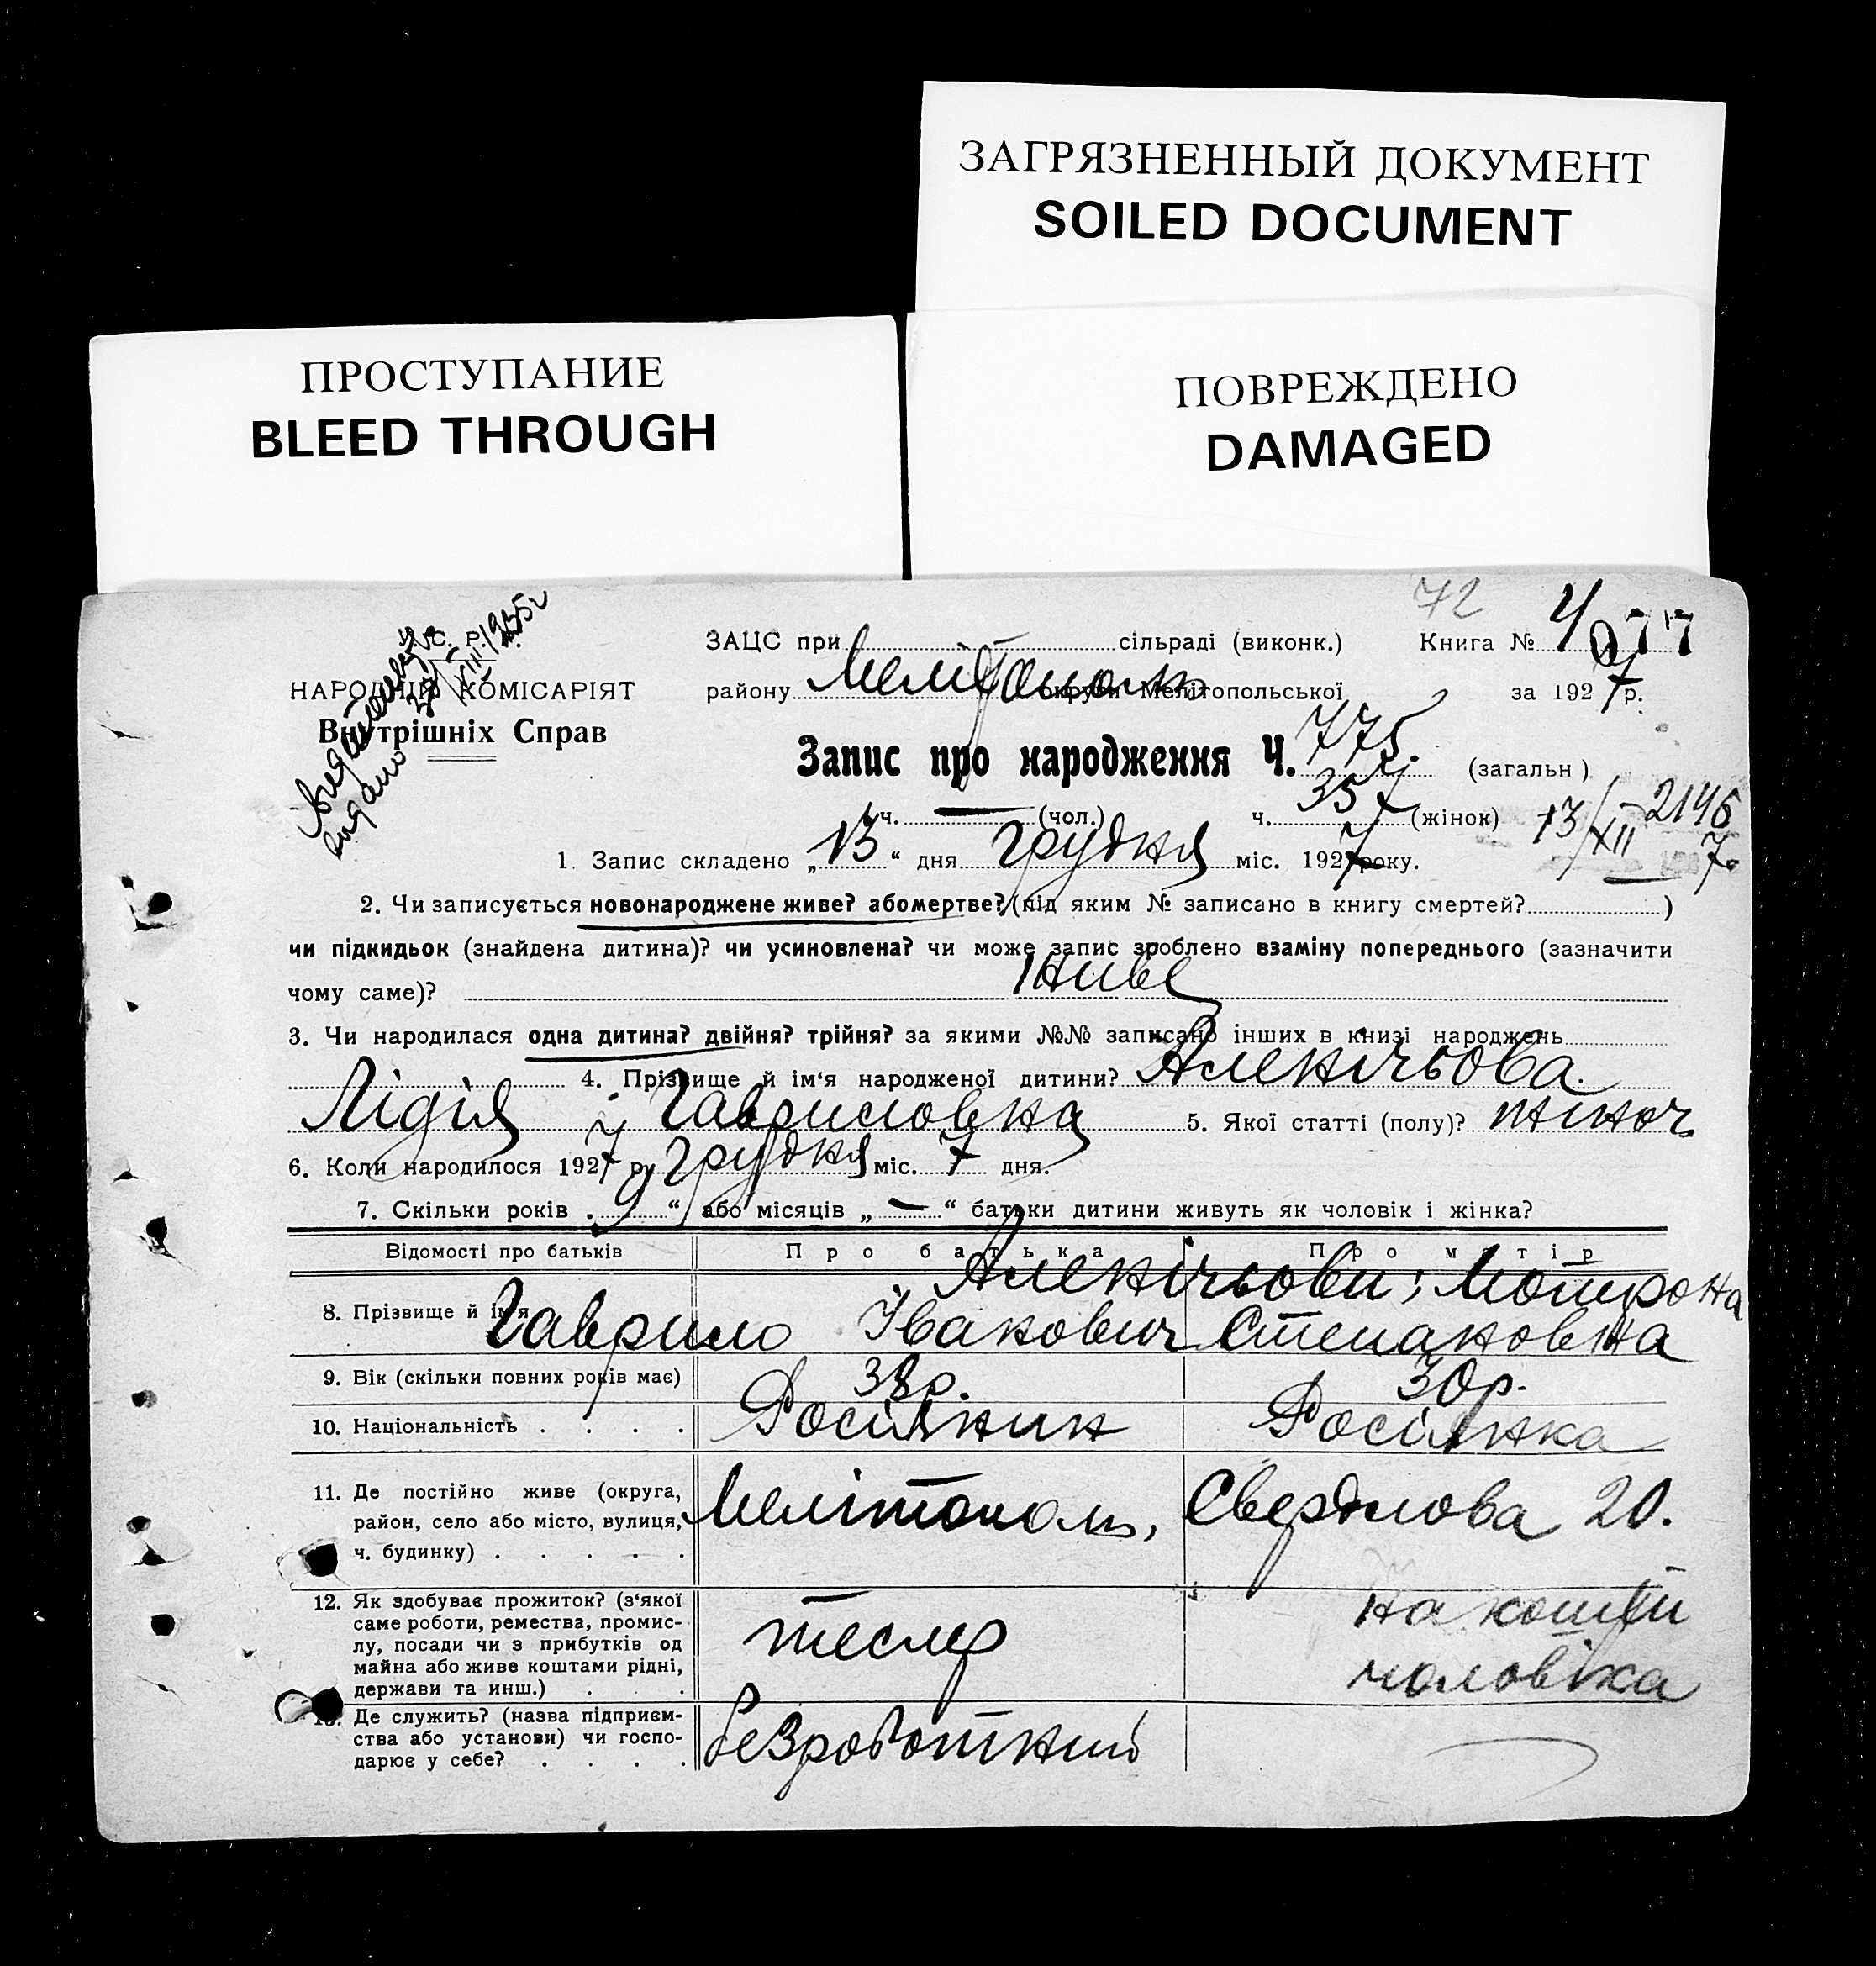 ЗАГРЯЗНЕННЫЙ ДОКУМЕНТ
SOILED DOCUMENT
ПРОСТУПАНИЕ
BLEED THROUGH
ПОВРЕЖДЕНО
DAMAGED
72
ЗАЦС при сільраді (виконк.) Книга № 4077
НАРОДНІЙ КОМІСАРІЯТ
району Мелітополь округи Мелітопольської за 1927 р.
Внутрішніх Справ
Запис про народження Ч. 775. (загальн)
ч. — (чол.) ч. 357 (жінок) 13/XII 2146
1. Запис складено „13“ дня Грудня міс. 1927 року. 7
2. Чи записується новонароджене живе? або мертве? (під яким № записано в книгу смертей? )
чи підкидьок (знайдена дитина)? чи усиновлена? чи може запис зроблено взаміну попереднього (зазначити
чому саме)? живе
3. Чи народилася одна дитина? двійня? трійня? за якими №№ записано інших в книзі народжень
4. Прізвище й ім‘я народженої дитини? Алекічьова.
Лідія Гавриловна 5. Якої статті (полу)? жіноч.
6. Коли народилося 1927 р. Грудня міс. 7 дня.
7. Скільки років „9“ або місяців „—“ батьки дитини живуть як чоловік і жінка?
Відомості про батьків Про батька Про матір
Алекічьови; Мотрона
8. Прізвище й ім‘я Гаврило Іванович Степановна
9. Вік (скільки повних років має) 38р. 30р.
10. Національність . . . . Росіянин Росіянка
11. Де постійно живе (округа,
район, село або місто, вулиця, Мелітополь, Свердлова 20.
ч. будинку) . . . . .
12. Як здобуває прожиток? (з‘якої на кошти
саме роботи, ремества, промис-
лу, посади чи з прибутків од тесляр
майна або живе коштами рідні, чоловіка
держави та инш.) . . .
13. Де служить? (назва підприєм-
ства або установи) чи госпо- безроботний
дарює у себе? . . . .